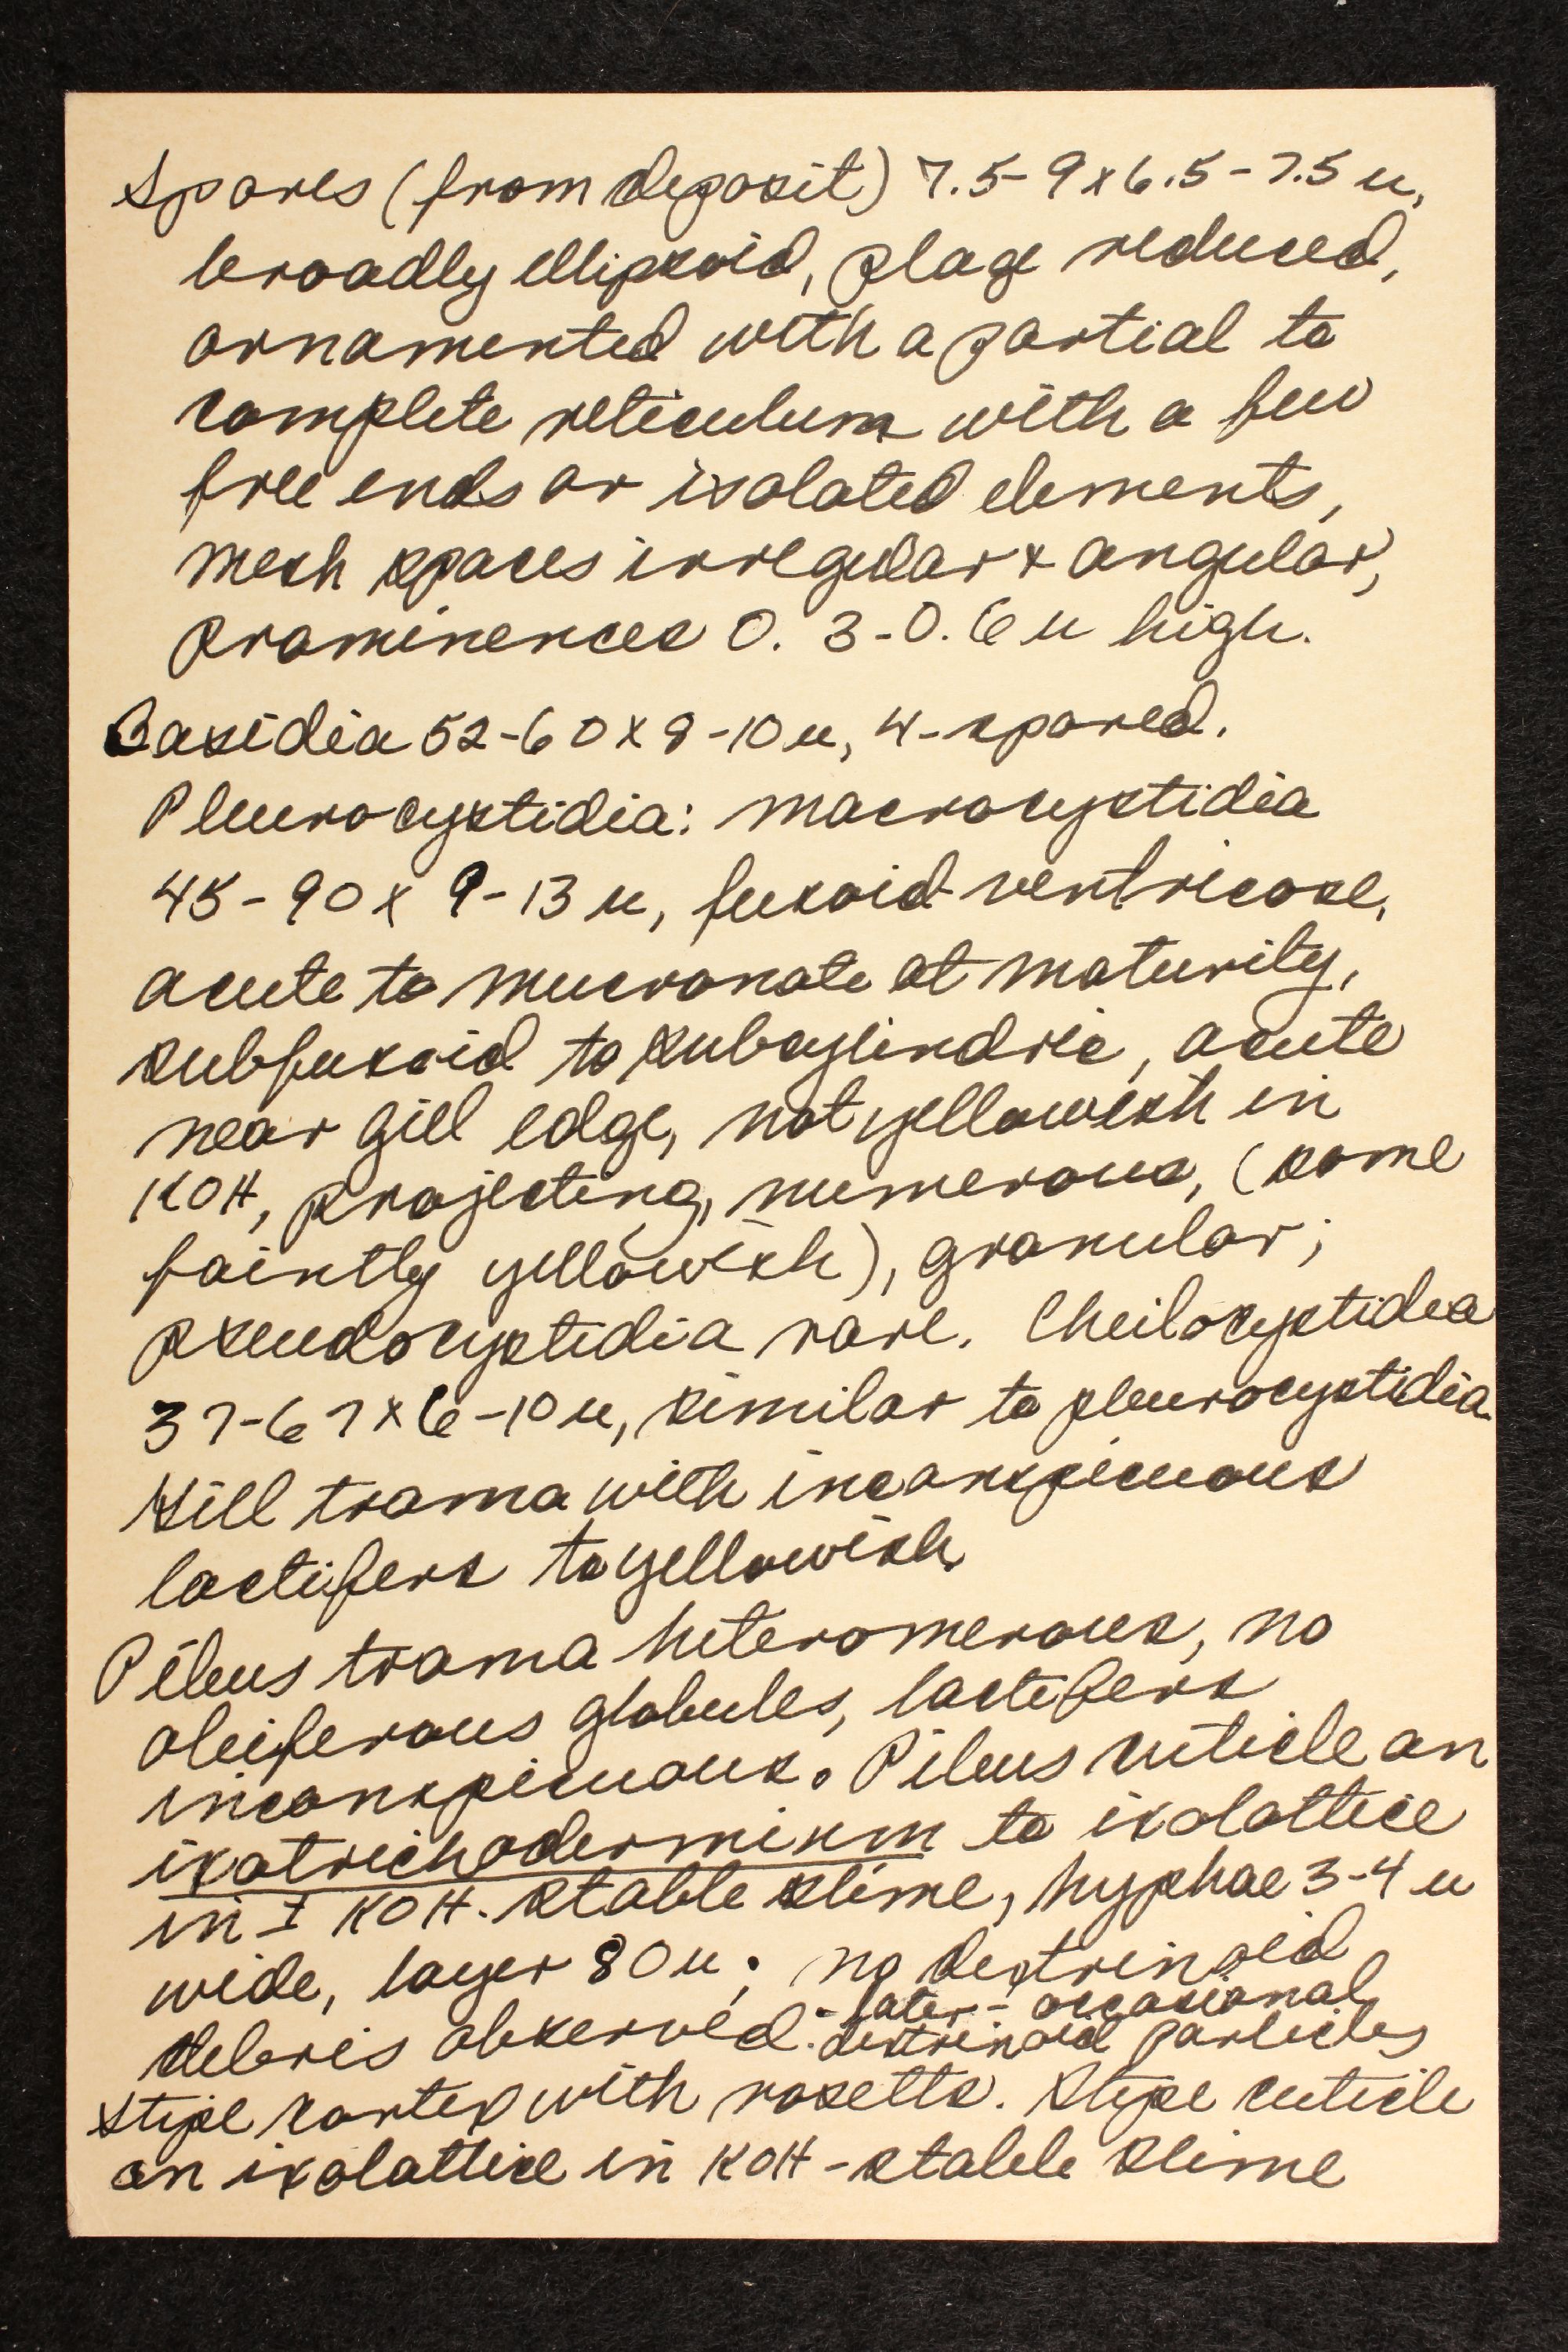 Spores (from deposit) 7.5-9 x 6.5-7.5 u,
broadly ellipsoid, plage reduced,
ornamented with a partial to
complete reticulum with a few
free ends or isolated elements,
mesh spaces irregular & angular,
prominences 0.3-0.6 u high.
Basidia 52-60 x 8-10 u, 4-spored.
Pleurocystidia: macrocystidia
45-90 x 9-13 u, fusoid-ventricose,
acute to mucronate at maturity,
subfusoid to subcylindric, acute
near gill edge, not yellowish in
KOH, projecting, numerous, (some
faintly yellowish), granular;
pseudocystidia rare. Cheilocystidia
37-67 x 6-10 u, similar to pleurocystidia.
Gill trama with inconspicuous
lactifers to yellowish.
Pileus trama heteromerous, no
oleiferous globules, lactifers
inconspicuous. Pileus cuticle an
ixotrichodermium to ixolattice
in ± KOH-stable slime, hyphae 3-4 u
wide, layer 80 u; no dextrinoid
debris observed. - later - occasional
dextrinoid particles
Stipe cortex with rosetts. Stipe cuticle
an ixolattice in KOH-stable slime